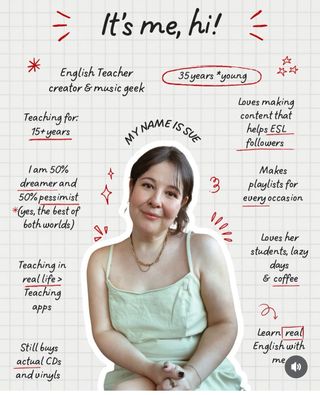 It's me, hi!
English Teacher
creator & music geek
35 years *young
Teaching for:
15+ years
MY NAME IS SUE
Loves making
content that
helps ESL
followers
I am 50%
dreamer and
50% pessimist
*(yes, the best of
both worlds)
Makes
playlists for
every occasion
Teaching in
real life >
Teaching
apps
Loves her
students, lazy
days
& coffee
Still buys
actual CDs
and vinyls
Learn real
English with
me